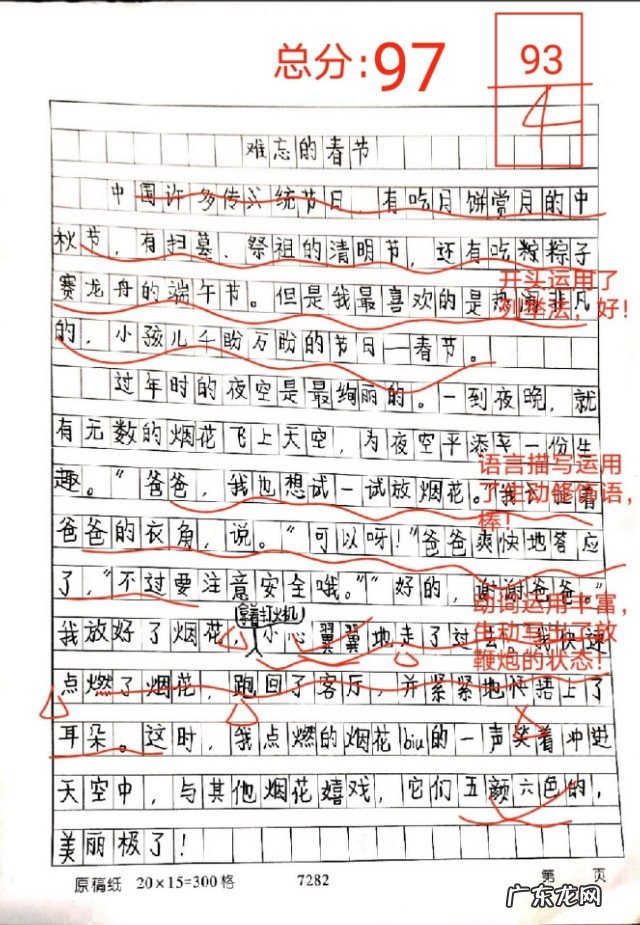 总分:97
93
4
难忘的春节
中国许多传统节日，有吃月饼赏月的中
秋节，有扫墓、祭祖的清明节，还有吃粽子
开头运用了
列举法，好！
赛龙舟的端午节。但是我最喜欢的是非凡
的，小孩儿千盼万盼的节日—春节。
过年时的夜空是最绚丽的。一到夜晚，就
有无数的烟花飞上天空，为夜空平添一份生
语言描写运用
趣。“爸爸，我也想试一试放烟花。”我
棒！
爸爸的衣角，说。“可以呀！”爸爸爽快地答应
了，“不过要注意安全哦。”“好的，谢谢爸爸”
动词运用丰富，
生动写出了放
鞭炮的状态！
拿着打火机
我放好了烟花，小心翼翼地走了过去。我快速
点燃了烟花，跑回了客厅，并紧紧地快捂上了
耳朵。这时，我点燃的烟花biu的一声笑着冲进
天空中，与其他烟花嬉戏，它们五颜六色的，
美丽极了！
原稿纸 20×15=300格 7282 第 页
广东龙网